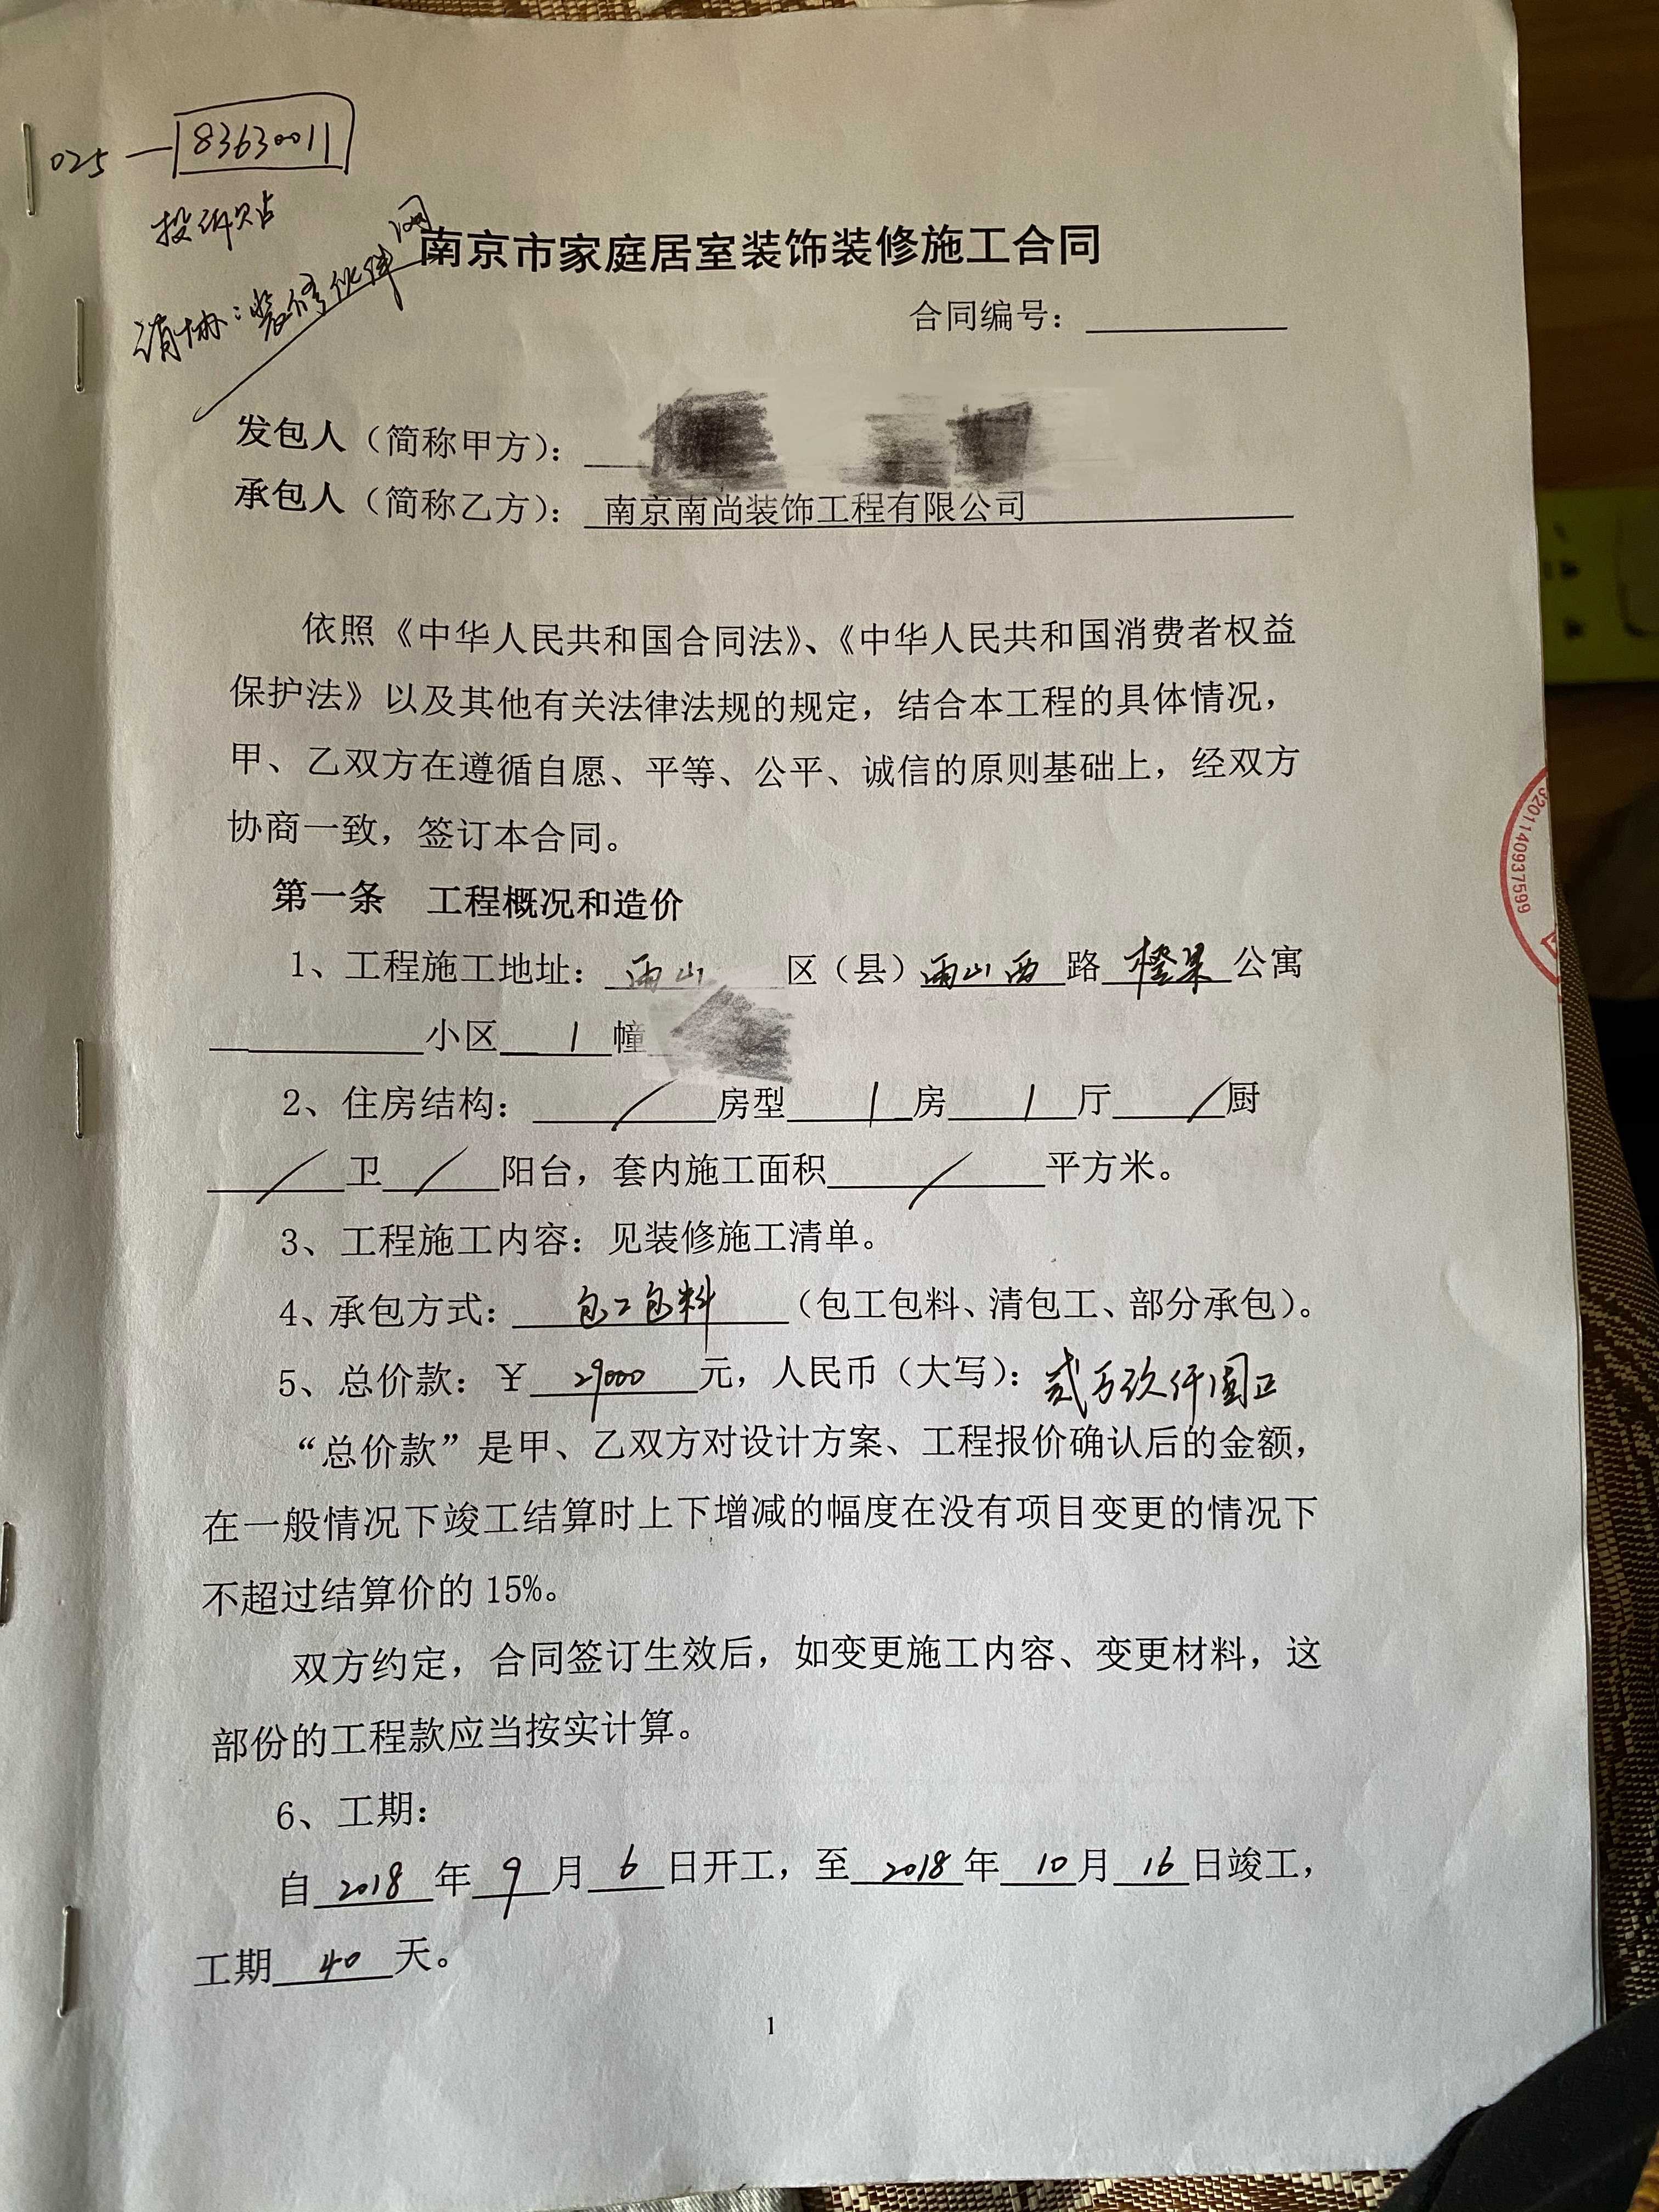 025—83630011
投诉贴
消协：装修伙伴网
南京市家庭居室装饰装修施工合同
合同编号：
发包人（简称甲方）：
承包人（简称乙方）：南京南尚装饰工程有限公司
依照《中华人民共和国合同法》、《中华人民共和国消费者权益
保护法》以及其他有关法律法规的规定，结合本工程的具体情况，
甲、乙双方在遵循自愿、平等、公平、诚信的原则基础上，经双方
协商一致，签订本合同。
第一条 工程概况和造价
1、工程施工地址：雨山区（县）雨山西路橙果公寓
小区1幢
2、住房结构：/房型1房1厅/厨
/卫/阳台，套内施工面积/平方米。
3、工程施工内容：见装修施工清单。
4、承包方式：包工包料（包工包料、清包工、部分承包）。
5、总价款：￥29000元，人民币（大写）：贰万玖仟圆正
“总价款”是甲、乙双方对设计方案、工程报价确认后的金额，
在一般情况下竣工结算时上下增减的幅度在没有项目变更的情况下
不超过结算价的15%。
双方约定，合同签订生效后，如变更施工内容、变更材料，这
部份的工程款应当按实计算。
6、工期：
自2018年9月6日开工，至2018年10月16日竣工，
工期40天。
1
3201140937599